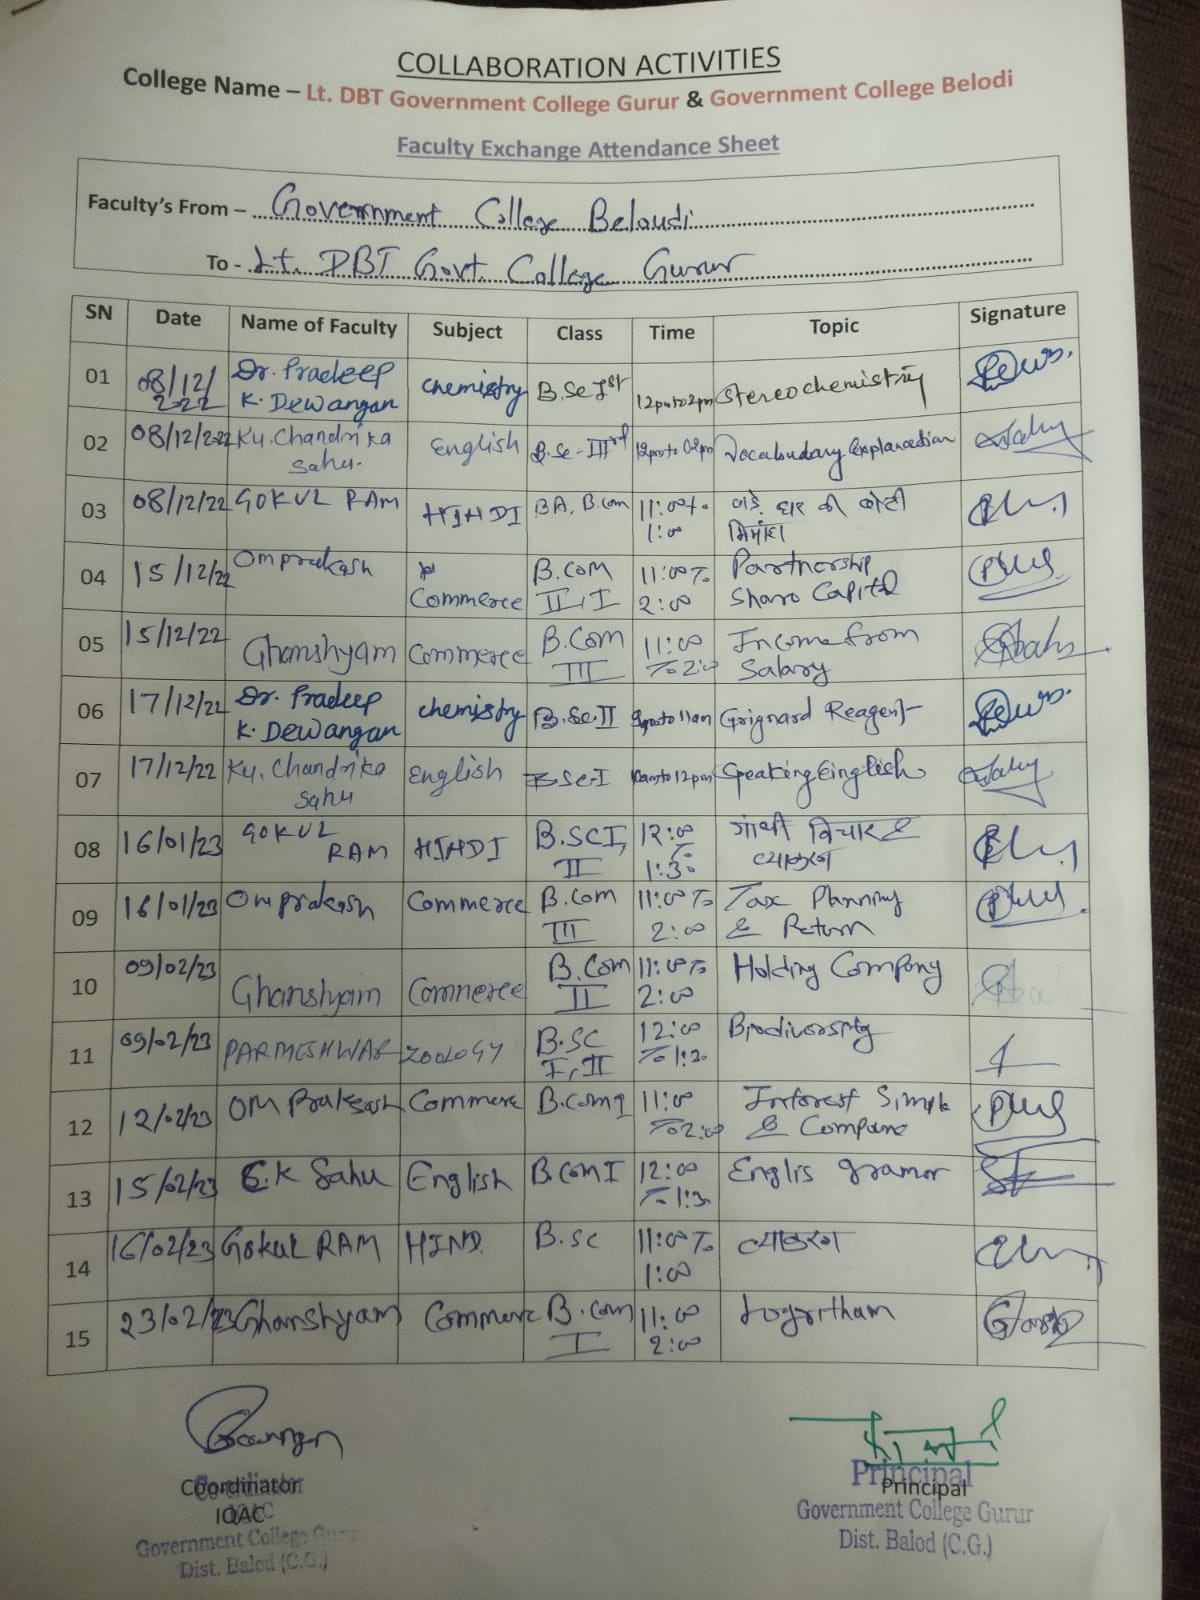 COLLABORATION ACTIVITIES
College Name – Lt. DBT Government College Gurur & Government College Belodi
Faculty Exchange Attendance Sheet
Faculty's From – Government College Beloudi
To - Lt. DBT Govt. College Gurur
SN Date Name of Faculty Subject Class Time Topic Signature
01 08/12/2022 Dr. Pradeep K. Dewangan chemistry B.Sc Ist 12pm to 2pm Stereochemistry
02 08/12/2022 Ku. Chandrika Sahu. English B.Sc-IIIrd 12pm to 02pm Vocabudary explanation
03 08/12/22 GOKUL RAM HINDI BA, B.Com 11:00 to 1:00
04 15/12/22 Omprakash Commerce B.Com II, I 11:00 To 2:00 Partnership Share Capitl
05 15/12/22 Ghanshyam Commerce B.Com III 11:00 To 2:00 Income from Salary
06 17/12/22 Dr. Pradeep K. Dewangan chemistry B.Sc.II 9am to 11am Grignard Reagent
07 17/12/22 Ku. Chandrika Sahu English B Sc-I 10am to 12pm Speaking Einglish
08 16/01/23 GOKUL RAM HINDI B.SCI, II 12:00 To 1:30 गांधी विचार & व्याकरण
09 16/01/23 Omprakash Commerce B.Com III 11:00 To 2:00 Tax Planning & Return
10 09/02/23 Ghanshyam Commerce B.Com II 11:00 To 2:00 Holding Company
11 09/02/23 PARMESHWAR ZOOLOGY B.SC I, II 12:00 To 1:30 Biodiversity
12 12/02/23 OM Prakash Commerce B.Com I 11:00 To 2:00 Interest Simple & Compune
13 15/02/23 C.K Sahu English B.Com I 12:00 To 1:30 Englis gramor
14 16/02/23 Gokul RAM HIND. B.Sc 11:00 To 1:00 व्याकरण
15 23/02/23 Ghanshyam Commerc B.Com I 11:00 2:00 Logartham
Coordinator
IQAC
Principal
Coordinator
IQAC
Government College Gurur
Dist. Balod (C.G.)
Principal
Government College Gurur
Dist. Balod (C.G.)